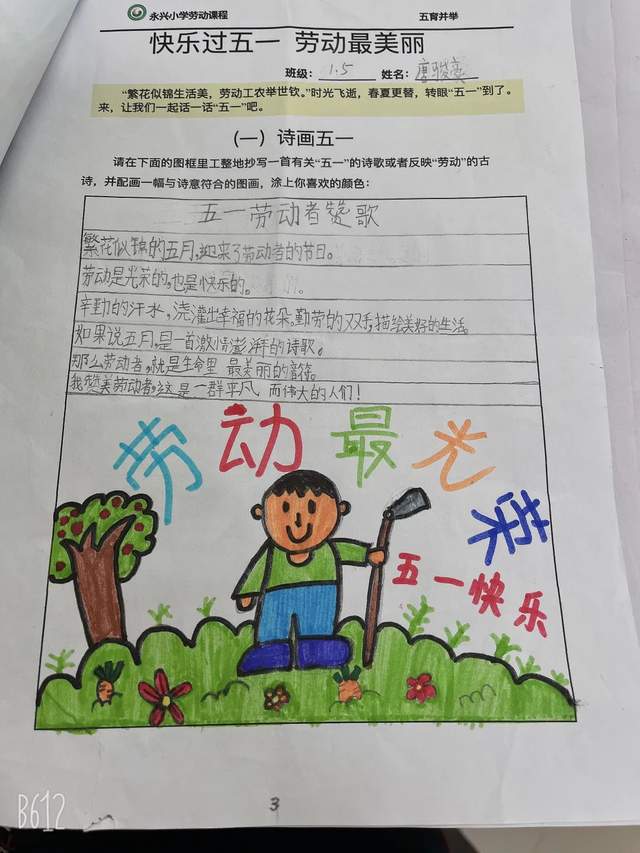 永兴小学劳动课程 五育并举
快乐过五一 劳动最美丽
班级: 1.5 姓名: 唐骏豪
“繁花似锦生活美，劳动工农举世钦。”时光飞逝，春夏更替，转眼“五一”到了。
来，让我们一起话一话“五一”吧。
（一）诗画五一
请在下面的图框里工整地抄写一首有关“五一”的诗歌或者反映“劳动”的古
诗，并配画一幅与诗意符合的图画，涂上你喜欢的颜色：
五一劳动者赞歌
繁花似锦的五月,迎来了劳动者的节日。
劳动是光荣的,也是快乐的。
辛勤的汗水,浇灌出幸福的花朵。勤劳的双手,描绘美好的生活。
如果说五月,是一首激情澎湃的诗歌。
那么劳动者,就是生命里 最美丽的音符。
我赞美劳动者,这是一群平凡 而伟大的人们！
劳动最光荣
五一快乐
3
B612